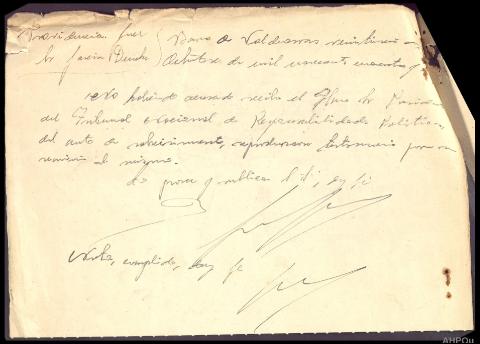 Providencia Juez
Sr García
Barco de Valdeorras veintiuno
Octubre de mil novecientos cuarenta y
No habiendo acusado recibo el Ilmo Sr
del Tribunal Nacional de Responsabilidades Políticas
del auto de sobreseimiento, testimonio para su
remisión al mismo.
Lo provee y rubrica S. Sª, doy fe
Nota, cumplido, doy fe
AHPOu